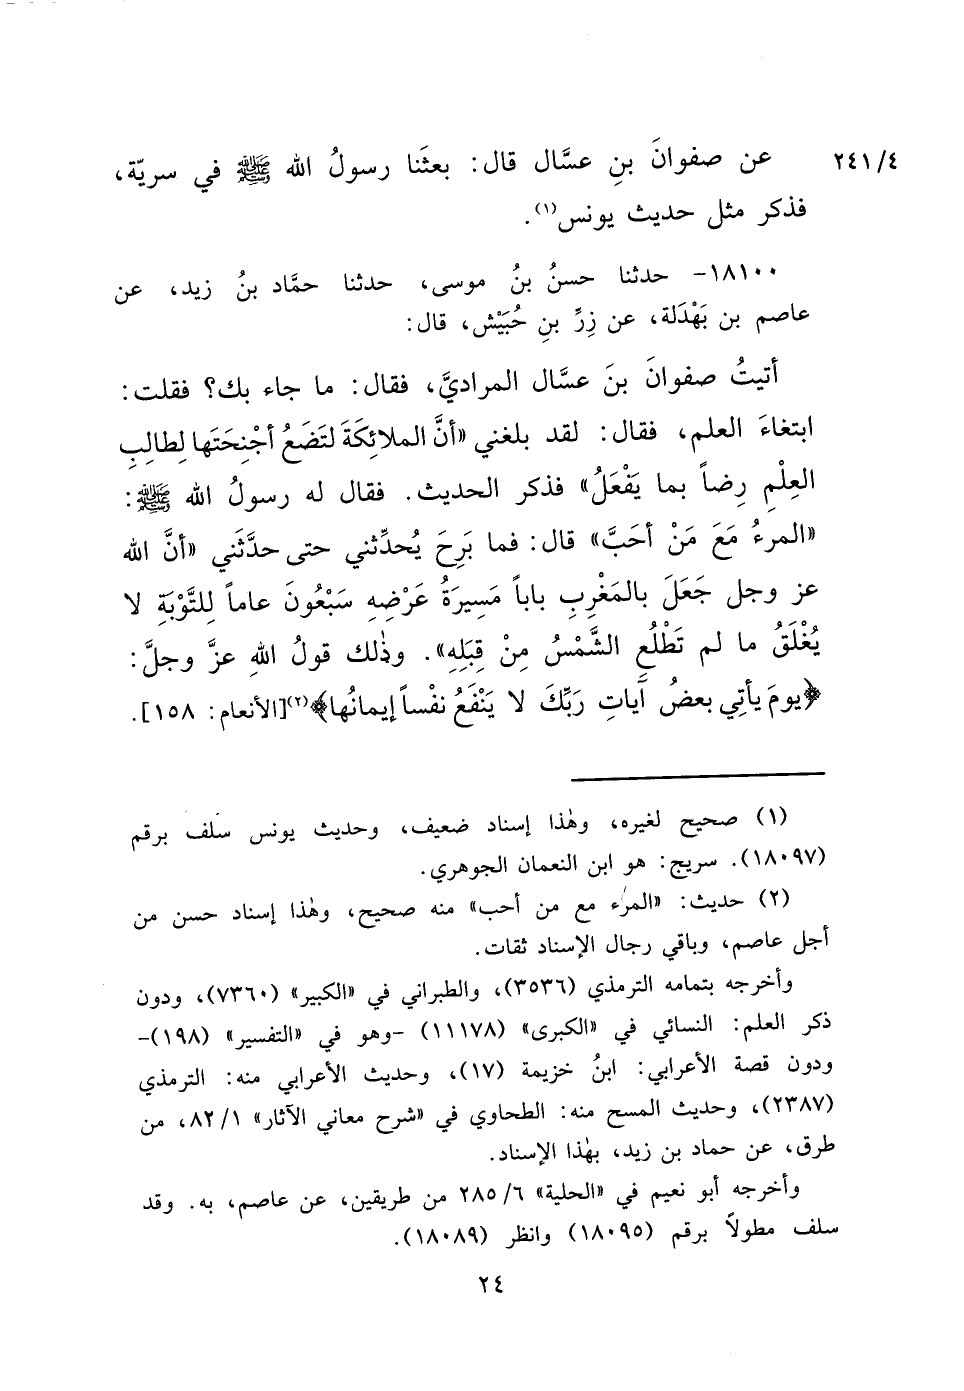 ٢٤١/٤
عن صفوانَ بنِ عسَّال قال: بعثَنا رسولُ الله ﷺ في سريّة،
فذكر مثل حديث يونس(١).
١٨١٠٠- حدثنا حسنُ بنُ موسى، حدثنا حمَّاد بنُ زيد، عن
عاصم بن بَهْدَلة، عن زِرِّ بنِ حُبَيْش، قال:
أتيتُ صفوانَ بنَ عسَّال المراديَّ، فقال: ما جاء بك؟ فقلت:
ابتغاءَ العلم، فقال: لقد بلغني «أنَّ الملائِكَةَ لتَضَعُ أجْنِحَتَها لِطالِبِ
العِلْمِ رِضاً بما يَفْعَلُ» فذكر الحديث. فقال له رسولُ الله ﷺ:
«المرءُ مَعَ مَنْ أحَبَّ» قال: فما بَرِحَ يُحدِّثني حتى حدَّثَني «أنَّ الله
عز وجل جَعَلَ بالمَغْرِبِ باباً مَسِيرَةُ عَرْضِهِ سَبْعُونَ عاماً لِلتَّوْبَةِ لا
يُغْلَقُ ما لم تَطْلُعِ الشَّمْسُ مِنْ قِبَلِهِ». وذٰلك قولُ اللهِ عزَّ وجلَّ:
﴿يومَ يأتِي بعضُ آياتِ رَبِّكَ لا يَنْفَعُ نفْساً إيمانُها﴾(٢)[الأنعام: ١٥٨].
(١) صحيح لغيره، وهٰذا إسناد ضعيف، وحديث يونس سلف برقم
(١٨٠٩٧). سريج: هو ابن النعمان الجوهري.
(٢) حديث: «المرء مع من أحب» منه صحيح، وهٰذا إسناد حسن من
أجل عاصم، وباقي رجال الإسناد ثقات.
وأخرجه بتمامه الترمذي (٣٥٣٦)، والطبراني في «الكبير» (٧٣٦٠)، ودون
ذكر العلم: النسائي في «الكبرى» (١١١٧٨) -وهو في «التفسير» (١٩٨)-
ودون قصة الأعرابي: ابنُ خزيمة (١٧)، وحديث الأعرابي منه: الترمذي
(٢٣٨٧)، وحديث المسح منه: الطحاوي في «شرح معاني الآثار» ٨٢/١، من
طرق، عن حماد بن زيد، بهٰذا الإسناد.
وأخرجه أبو نعيم في «الحلية» ٢٨٥/٦ من طريقين، عن عاصم، به. وقد
سلف مطولاً برقم (١٨٠٩٥) وانظر (١٨٠٨٩).
٢٤